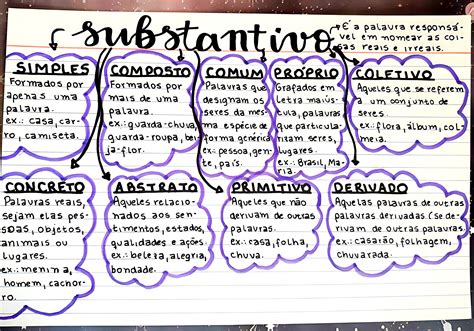 substantivo
É a palavra responsá-
vel em nomear as coi-
sas reais e irreais.
SIMPLES
Formados por
apenas uma
palavra.
ex.: casa, car-
ro, camiseta.
COMPOSTO
Formados por
mais de uma
palavra.
ex.: guarda-chuva,
guarda-roupa, bei-
ja-flor.
COMUM
Palavras que
designam os
seres da mes-
ma espécie de
forma genérica
ex.: pessoa, gen-
te, país.
PRÓPRIO
Grafados em
letra maiús-
cula, palavras
que particula-
rizam seres,
lugares.
ex.: Brasil, Ma-
ria.
COLETIVO
Aqueles que se referem
a um conjunto de
seres.
ex.: flora, álbum, col-
meia.
CONCRETO
Palavras reais,
sejam elas pes-
soas, objetos,
animais ou
lugares.
ex.: menina,
homem, cachor-
ro.
ABSTRATO
Aqueles relacio-
nados aos sen-
timentos, estados,
qualidades e ações.
ex.: beleza, alegria,
bondade.
PRIMITIVO
Aqueles que não
derivam de outras
palavras.
ex.: casa, folha,
chuva.
DERIVADO
Aquelas palavras de outras
palavras derivadas (se de-
rivam de outras palavras
ex.: casarão, folhagem,
chuvarada.